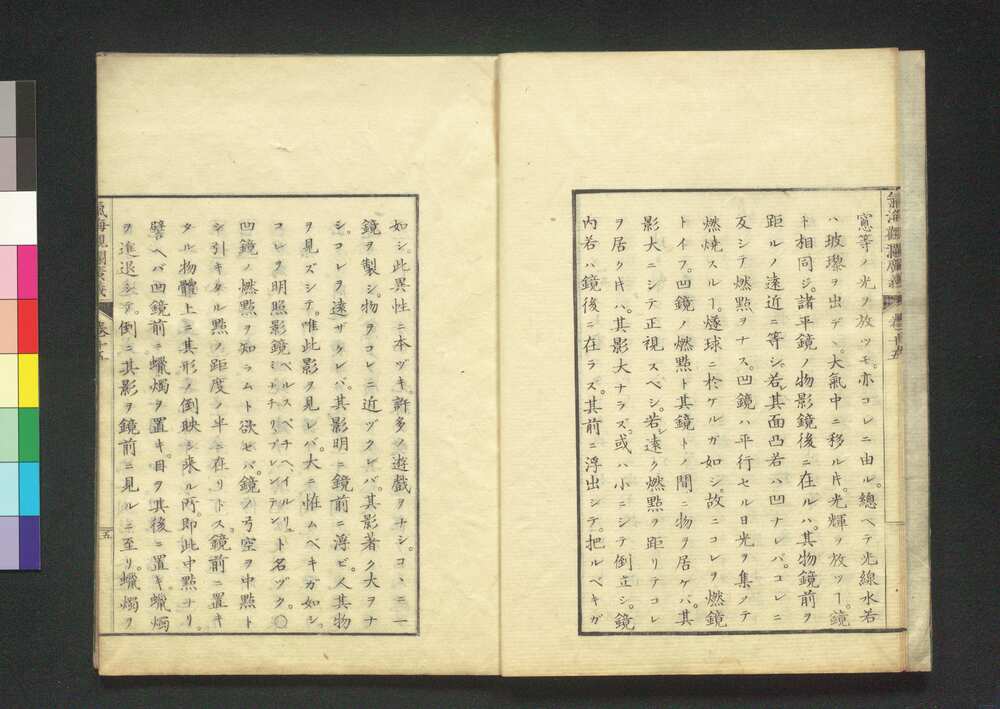 氣海觀瀾廣義
窻等ノ光ヲ放ツモ。亦コレニ由ル。總ベテ光線水若
ハ玻瓈ヲ出デヽ、大氣中ニ移ル𪜈。光輝ヲ放ツヿ。鏡
ト相同ジ。諸平鏡ノ物影鏡後ニ在ルハ。其物鏡前ヲ
距ルノ遠近ニ等シ。若シ其面凸若ハ凹ナレバ。コレニ
反シテ燃點ヲナス。凹鏡ハ平行セル日光ヲ集メテ
燃燒スルヿ。燧球ニ於ケルガ如シ。故ニコレヲ燃鏡
トイフ。凹鏡ノ燃點ト其鏡トノ間ニ物ヲ居ケバ。其
影大ニシテ正視スベシ。若シ遠ク燃點ヲ距リテコレ
ヲ居ク𪜈ハ。其影大ナラズ。或ハ小ニシテ倒立シ。鏡
内若ハ鏡後ニ在ラズ。其前ニ浮出シテ。把ルベキガ
如シ。此異性ニ本ヅキ。許多ノ遊戲ヲナシ。コヽニ一
鏡ヲ製シ。物ヲコレニ近ヅクレバ。其影著ク大ヲナ
シ。コレヲ遠ザクレバ。其影明ニ鏡前ニ浮ビ。人其物
ヲ見ズシテ。唯此影ヲ見レバ。大ニ恠ムベキガ如シ。
コレヲ明照影鏡ト名ヅク。〇
凹鏡ノ燃點ヲ知ラムト欲セバ。鏡ノ弓空ヲ中點ト
シ引キタル點ノ距度ノ半ニ在リトス。鏡前ニ置キ
タル物體上ニ其形ノ倒映シ來ル所。即此中點ナリ。
譬ヘバ凹鏡前ニ蠟燭ヲ置キ。目ヲ其後ニ置キ。蠟燭
ヲ進退シテ。倒ニ其影ヲ鏡前ニ見ルニ至リ。蠟燭ヲ
氣海觀瀾廣義
卷十五
五